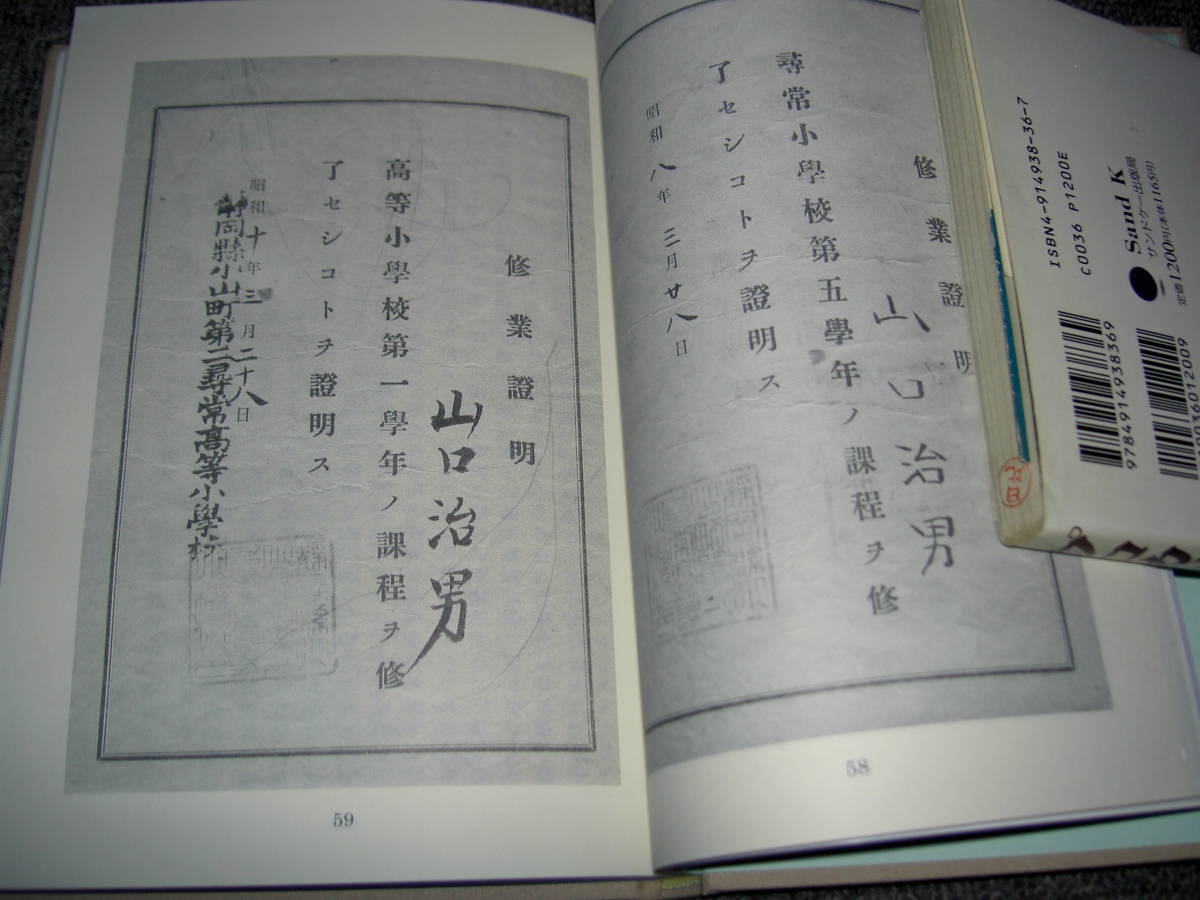 修業證明
山口治男
尋常小學校第五學年ノ課程ヲ修
了セシコトヲ證明ス
昭和八年三月廿八日
58
修業證明
山口治男
高等小學校第一學年ノ課程ヲ修
了セシコトヲ證明ス
昭和十年三月二十八日
靜岡縣小山町第二尋常高等小學校
59
ISBN4-914938-36-7
C0036 P1200E
Sand K
サンドケー出版局
定価1200円(本体1165円)
9784914938369